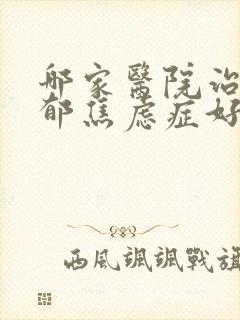 哪家醫院治
郁焦虑症好
西風颯颯戰旗